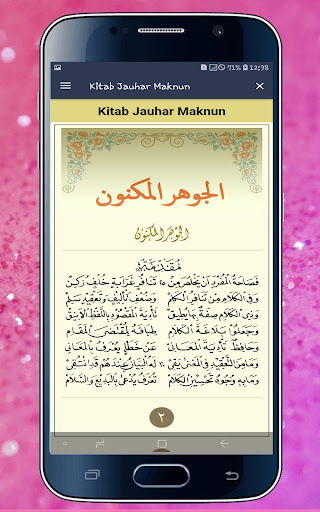 71% 12:38
Kitab Jauhar Maknun ×
Kitab Jauhar Maknun
الجوهر المكنون
الجَوْهَرُ المَكْنُون
مُقَدِّمَةٌ
فَصَاحَةُ الْمُفْرَدِ أَنْ يَخْلُصَ مِنْ تَنَافُرٍ غَرَابَةٍ خُلْفٍ زُكِنْ
وَفِي الْكَلَامِ مِنْ تَنَافُرِ الْكَلِمْ وَضَعْفِ تَأْلِيفٍ وَتَعْقِيدٍ سَلِمْ
وَذِي الْكَلَامِ صِفَةٌ بِهَا يُطِيقْ تَأْدِيَةَ الْمَقْصُودِ بِاللَّفْظِ الْأَنِيقْ
وَجَعَلُوا بَلَاغَةَ الْكَلَامِ طِبَاقَهُ لِمُقْتَضَى الْمَقَامِ
وَحَافِظٌ تَأْدِيَةَ الْمَعَانِي عَنْ خَطَإٍ يُعْرَفُ بِالْمَعَانِي
وَمَا مِنَ التَّعْقِيدِ فِي الْمَعْنَى يَقِي لَهُ الْبَيَانُ عِنْدَهُمْ قَدِ انْتُقِي
وَمَا بِهِ وُجُوهُ تَحْسِينِ الْكَلَامْ تُعْرَفُ يُدْعَى بِالْبَدِيعِ وَالسَّلَامْ
٢